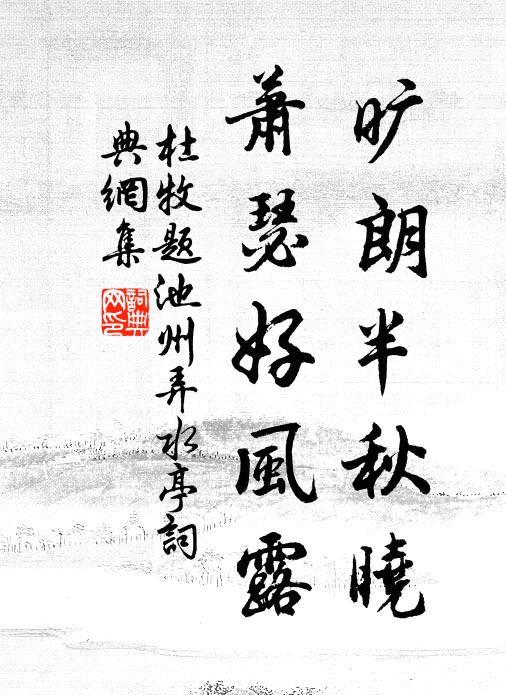 旷朗半秋曉
蕭瑟好風露
杜牧题池州弄水亭詞
典網集
詞典網印